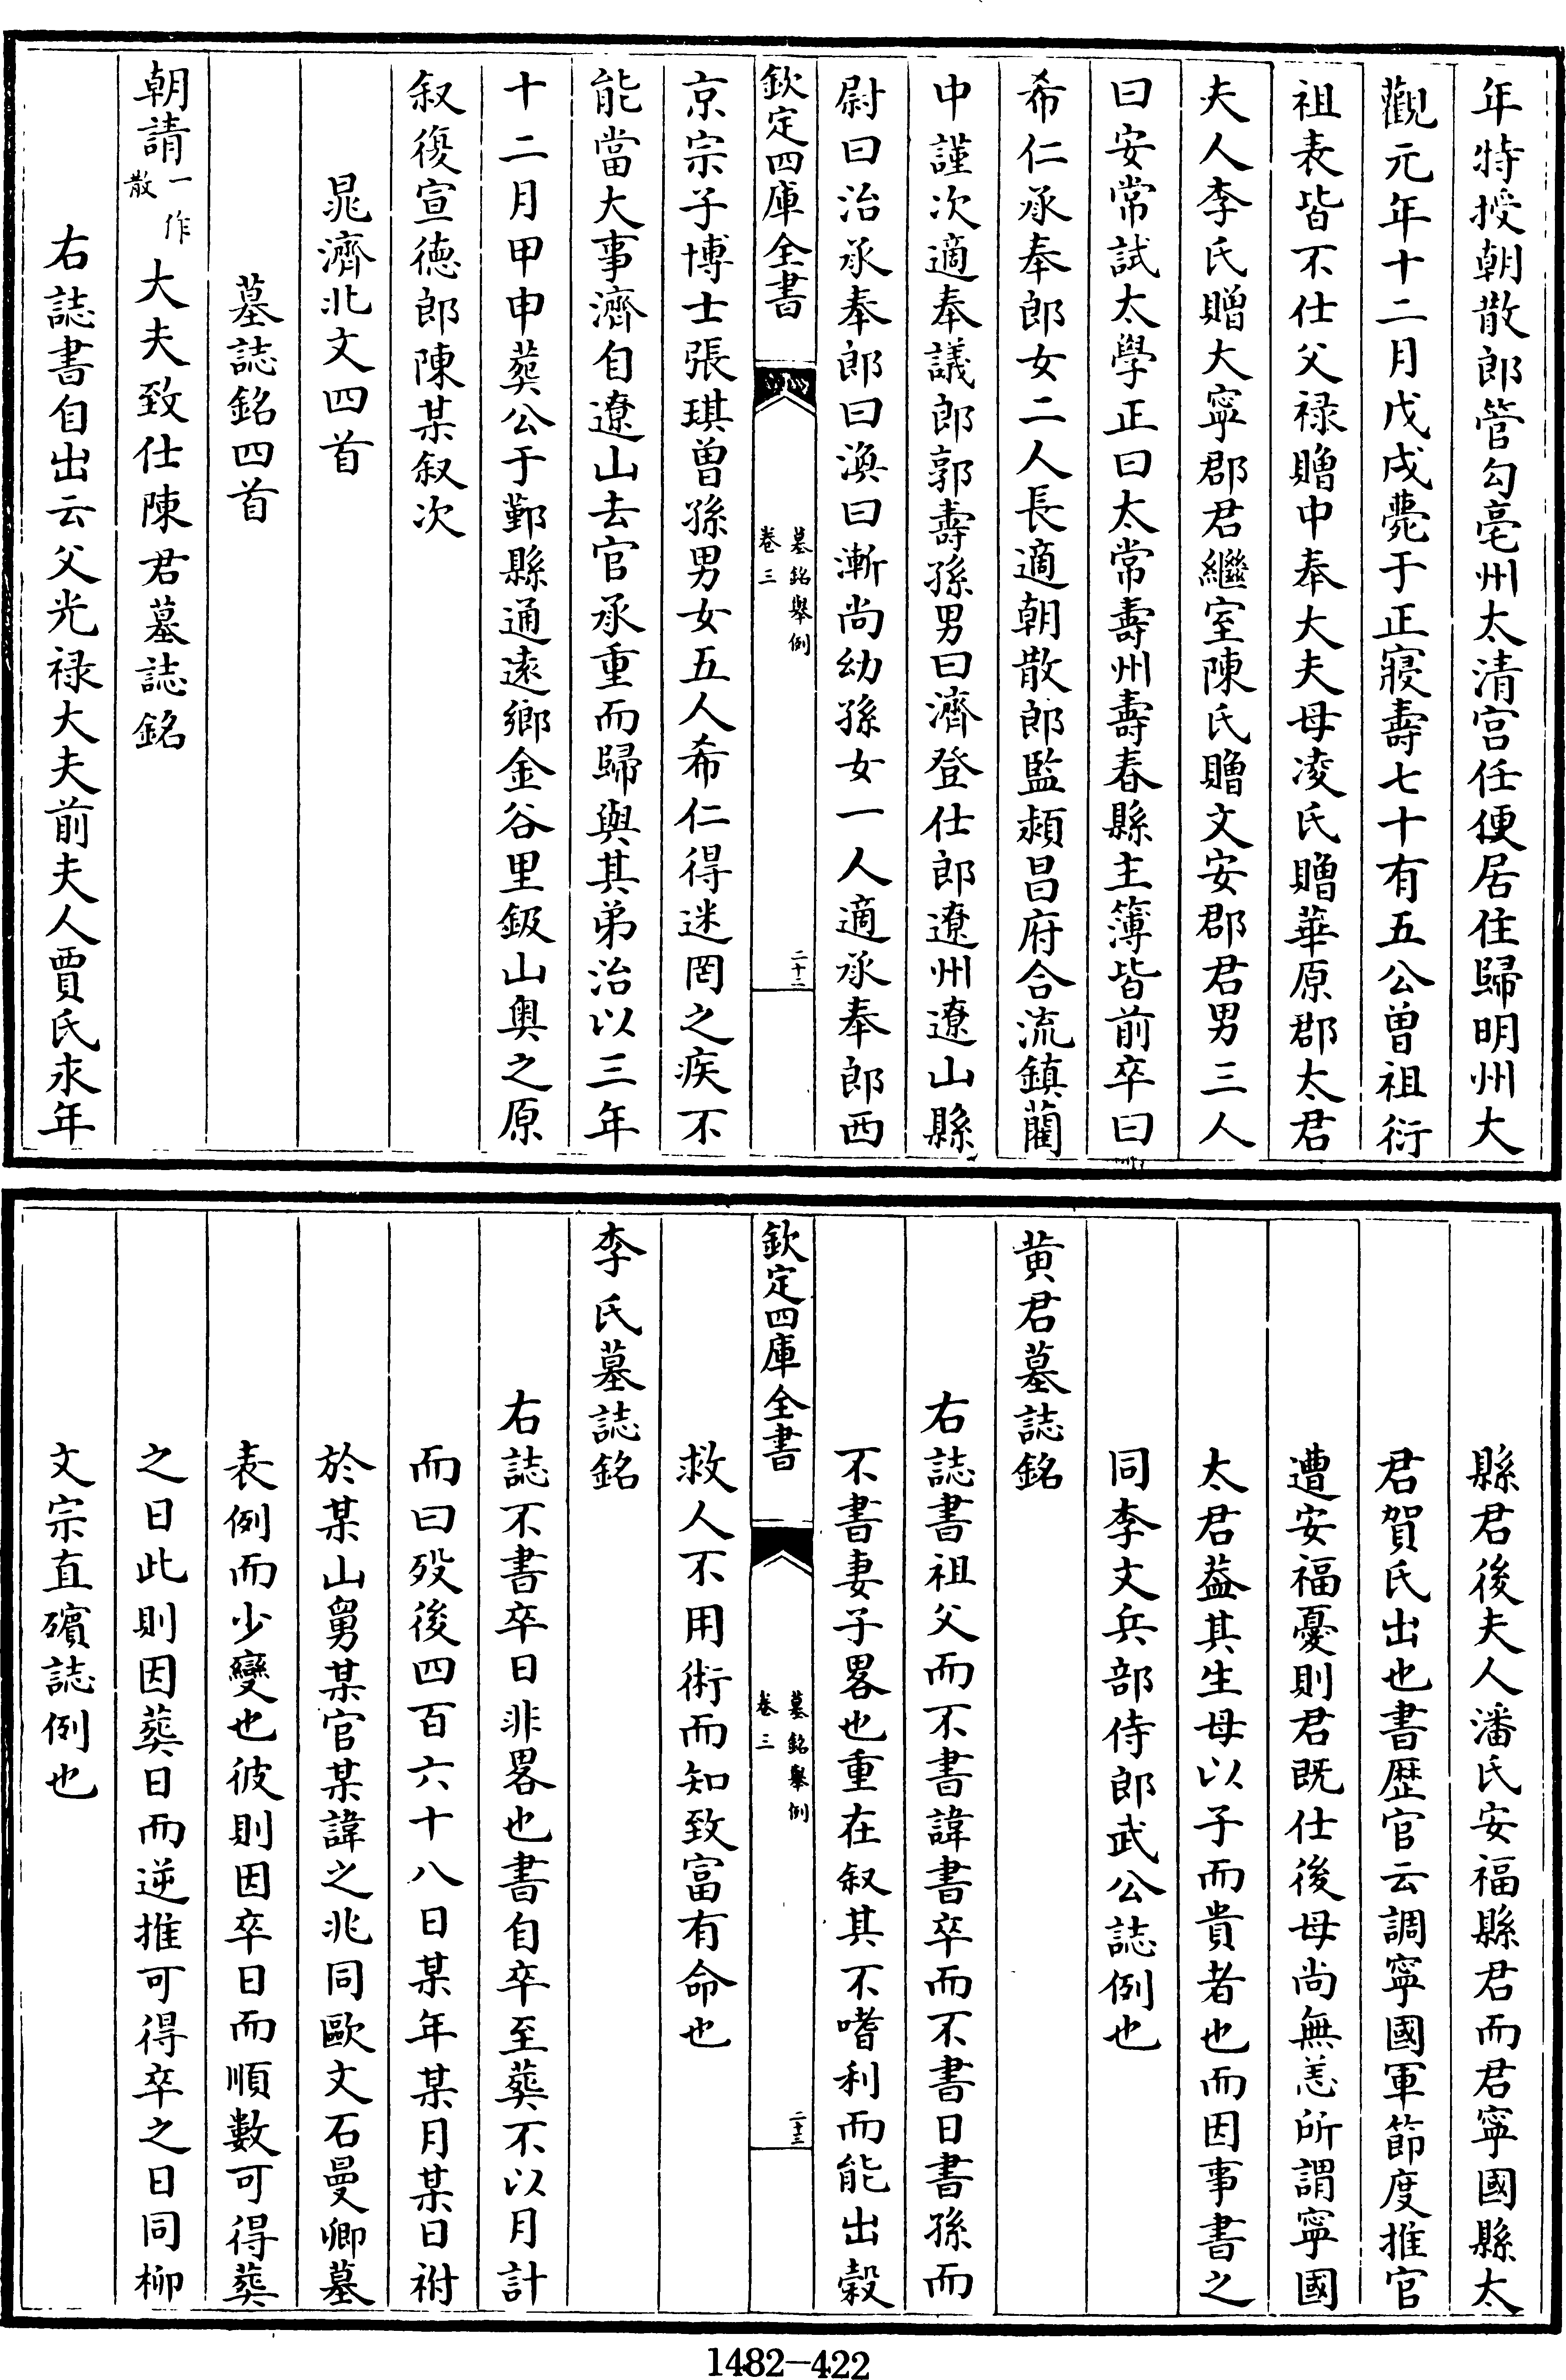 年特授朝散郎管勾亳州太清宫任便居住歸明州大
觀元年十二月戊戌薨于正寢壽七十有五公曾祖衍
祖表皆不仕父禄贈中奉大夫母凌氏贈華原郡太君
夫人李氏贈大寧郡君繼室陳氏贈文安郡君男三人
曰安常試太學正曰太常壽州壽春縣主簿皆前卒曰
希仁承奉郎女二人長適朝散郎監潁昌府合流鎮藺
中謹次適奉議郎郭壽孫男曰濟登仕郎遼州遼山縣
尉曰治承奉郎曰渙曰漸尚幼孫女一人適承奉郎西
欽定四庫全書
墓銘舉例
卷三
二十二
京宗子博士張琪曾孫男女五人希仁得迷罔之疾不
能當大事濟自遼山去官承重而歸與其弟治以三年
十二月甲申葬公于鄞縣通遠鄉金谷里鈒山奥之原
叙復宣德郎陳某叙次
晁濟北文四首
墓誌銘四首
朝請一作散大夫致仕陳君墓誌銘
右誌書自出云父光禄大夫前夫人賈氏永年
縣君後夫人潘氏安福縣君而君寧國縣太
君賀氏出也書歴官云調寧國軍節度推官
遭安福憂則君既仕後母尚無恙所謂寧國
太君葢其生母以子而貴者也而因事書之
同李文兵部侍郎武公誌例也
黄君墓誌銘
右誌書祖父而不書諱書卒而不書日書孫而
不書妻子畧也重在叙其不嗜利而能出穀
欽定四庫全書
墓銘舉例
卷三
二十三
救人不用術而知致富有命也
李氏墓誌銘
右誌不書卒日非畧也書自卒至葬不以月計
而曰殁後四百六十八日某年某月某日祔
於某山舅某官某諱之兆同歐文石曼卿墓
表例而少變也彼則因卒日而順數可得葬
之日此則因葬日而逆推可得卒之日同柳
文宗直殯誌例也
1482-422